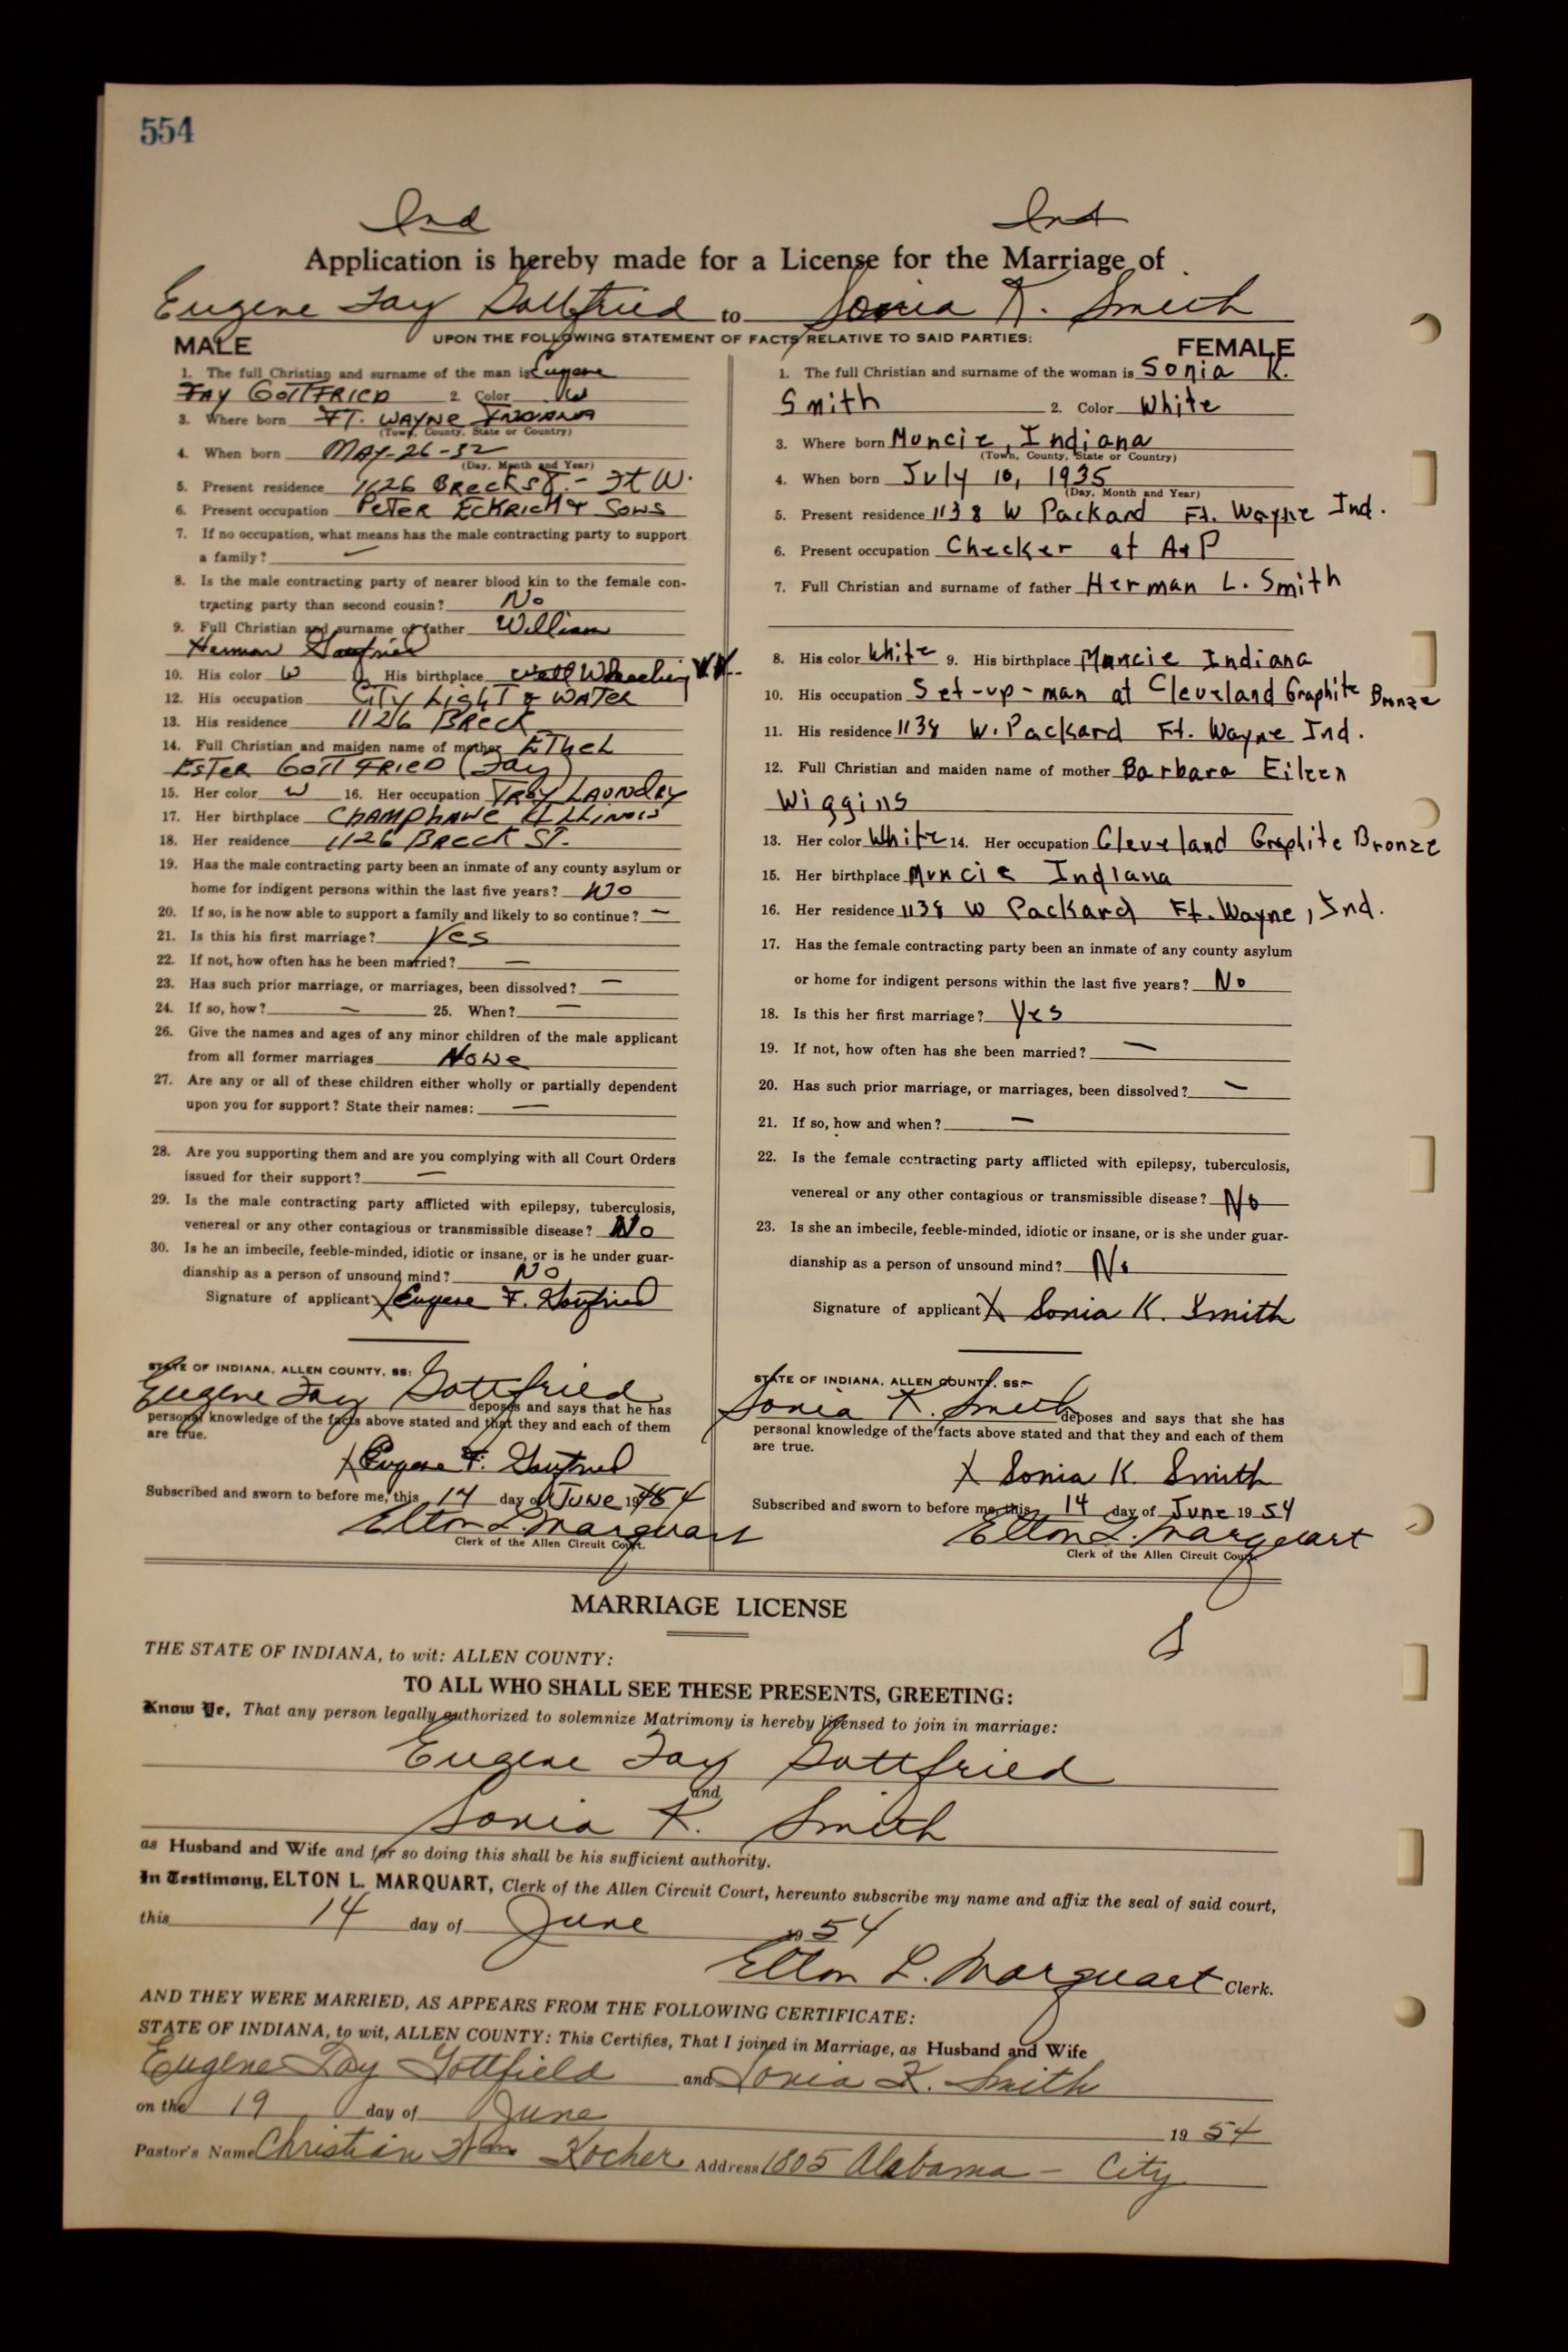 554
Ind Ind
Application is hereby made for a License for the Marriage of
Eugene Fay Gottfried to Sonia K. Smith
UPON THE FOLLOWING STATEMENT OF FACTS RELATIVE TO SAID PARTIES:
MALE
1. The full Christian and surname of the man is Eugene
FAY GOTTFRIED 2. Color W
3. Where born FT. WAYNE INDIANA
(Town, County, State or Country)
4. When born MAY-26-32
(Day, Month and Year)
5. Present residence 1126 BRECK ST. - Ft W.
6. Present occupation PETER ECKRICH & SONS
7. If no occupation, what means has the male contracting party to support
a family?
8. Is the male contracting party of nearer blood kin to the female con-
tracting party than second cousin? No
9. Full Christian and surname of father William
Herman Gottfried
10. His color W 11. His birthplace
12. His occupation CITY LIGHT & WATER
13. His residence 1126 BRECK
14. Full Christian and maiden name of mother ETHEL
ESTER GOTTFRIED (Fay)
15. Her color W 16. Her occupation TROY LAUNDRY
17. Her birthplace CHAMPHANE ILLINOIS
18. Her residence 1126 BRECK ST.
19. Has the male contracting party been an inmate of any county asylum or
home for indigent persons within the last five years? NO
20. If so, is he now able to support a family and likely to so continue? —
21. Is this his first marriage? Yes
22. If not, how often has he been married? —
23. Has such prior marriage, or marriages, been dissolved? —
24. If so, how? — 25. When? —
26. Give the names and ages of any minor children of the male applicant
from all former marriages NONE
27. Are any or all of these children either wholly or partially dependent
upon you for support? State their names: —
28. Are you supporting them and are you complying with all Court Orders
issued for their support? —
29. Is the male contracting party afflicted with epilepsy, tuberculosis,
venereal or any other contagious or transmissible disease? No
30. Is he an imbecile, feeble-minded, idiotic or insane, or is he under guar-
dianship as a person of unsound mind? NO
Signature of applicant X Eugene F. Gottfried
STATE OF INDIANA, ALLEN COUNTY, SS:
Eugene Fay Gottfried deposes and says that he has
personal knowledge of the facts above stated and that they and each of them
are true.
X Eugene F. Gottfried
Subscribed and sworn to before me, this 14 day of JUNE 1954
Elton L. Marquart
Clerk of the Allen Circuit Court.
FEMALE
1. The full Christian and surname of the woman is Sonia K.
Smith 2. Color White
3. Where born Muncie, Indiana
(Town, County, State or Country)
4. When born July 10, 1935
(Day, Month and Year)
5. Present residence 1138 W Packard Ft. Wayne Ind.
6. Present occupation Checker at A&P
7. Full Christian and surname of father Herman L. Smith
8. His color White 9. His birthplace Muncie Indiana
10. His occupation Set-up-man at Cleveland Graphite Bronze
11. His residence 1138 W. Packard Ft. Wayne Ind.
12. Full Christian and maiden name of mother Barbara Eileen
Wiggins
13. Her color White 14. Her occupation Cleveland Graphite Bronze
15. Her birthplace Muncie Indiana
16. Her residence 1138 W Packard Ft. Wayne, Ind.
17. Has the female contracting party been an inmate of any county asylum
or home for indigent persons within the last five years? No
18. Is this her first marriage? Yes
19. If not, how often has she been married? —
20. Has such prior marriage, or marriages, been dissolved? —
21. If so, how and when? —
22. Is the female contracting party afflicted with epilepsy, tuberculosis,
venereal or any other contagious or transmissible disease? No
23. Is she an imbecile, feeble-minded, idiotic or insane, or is she under guar-
dianship as a person of unsound mind? No
Signature of applicant X Sonia K. Smith
STATE OF INDIANA, ALLEN COUNTY, SS:
Sonia K. Smith deposes and says that she has
personal knowledge of the facts above stated and that they and each of them
are true.
X Sonia K. Smith
Subscribed and sworn to before me, this 14 day of June 1954
Elton L. Marquart
Clerk of the Allen Circuit Court.
MARRIAGE LICENSE
THE STATE OF INDIANA, to wit: ALLEN COUNTY:
TO ALL WHO SHALL SEE THESE PRESENTS, GREETING:
Know Ye, That any person legally authorized to solemnize Matrimony is hereby licensed to join in marriage:
Eugene Fay Gottfried
and
Sonia K. Smith
as Husband and Wife and for so doing this shall be his sufficient authority.
In Testimony, ELTON L. MARQUART, Clerk of the Allen Circuit Court, hereunto subscribe my name and affix the seal of said court,
this 14 day of June 1954
Elton L. Marquart Clerk.
AND THEY WERE MARRIED, AS APPEARS FROM THE FOLLOWING CERTIFICATE:
STATE OF INDIANA, to wit, ALLEN COUNTY: This Certifies, That I joined in Marriage, as Husband and Wife
Eugene Fay Gottfield and Sonia K. Smith
on the 19 day of June 1954
Pastor's Name Christian Wm Kocher Address 1805 Alabama - City